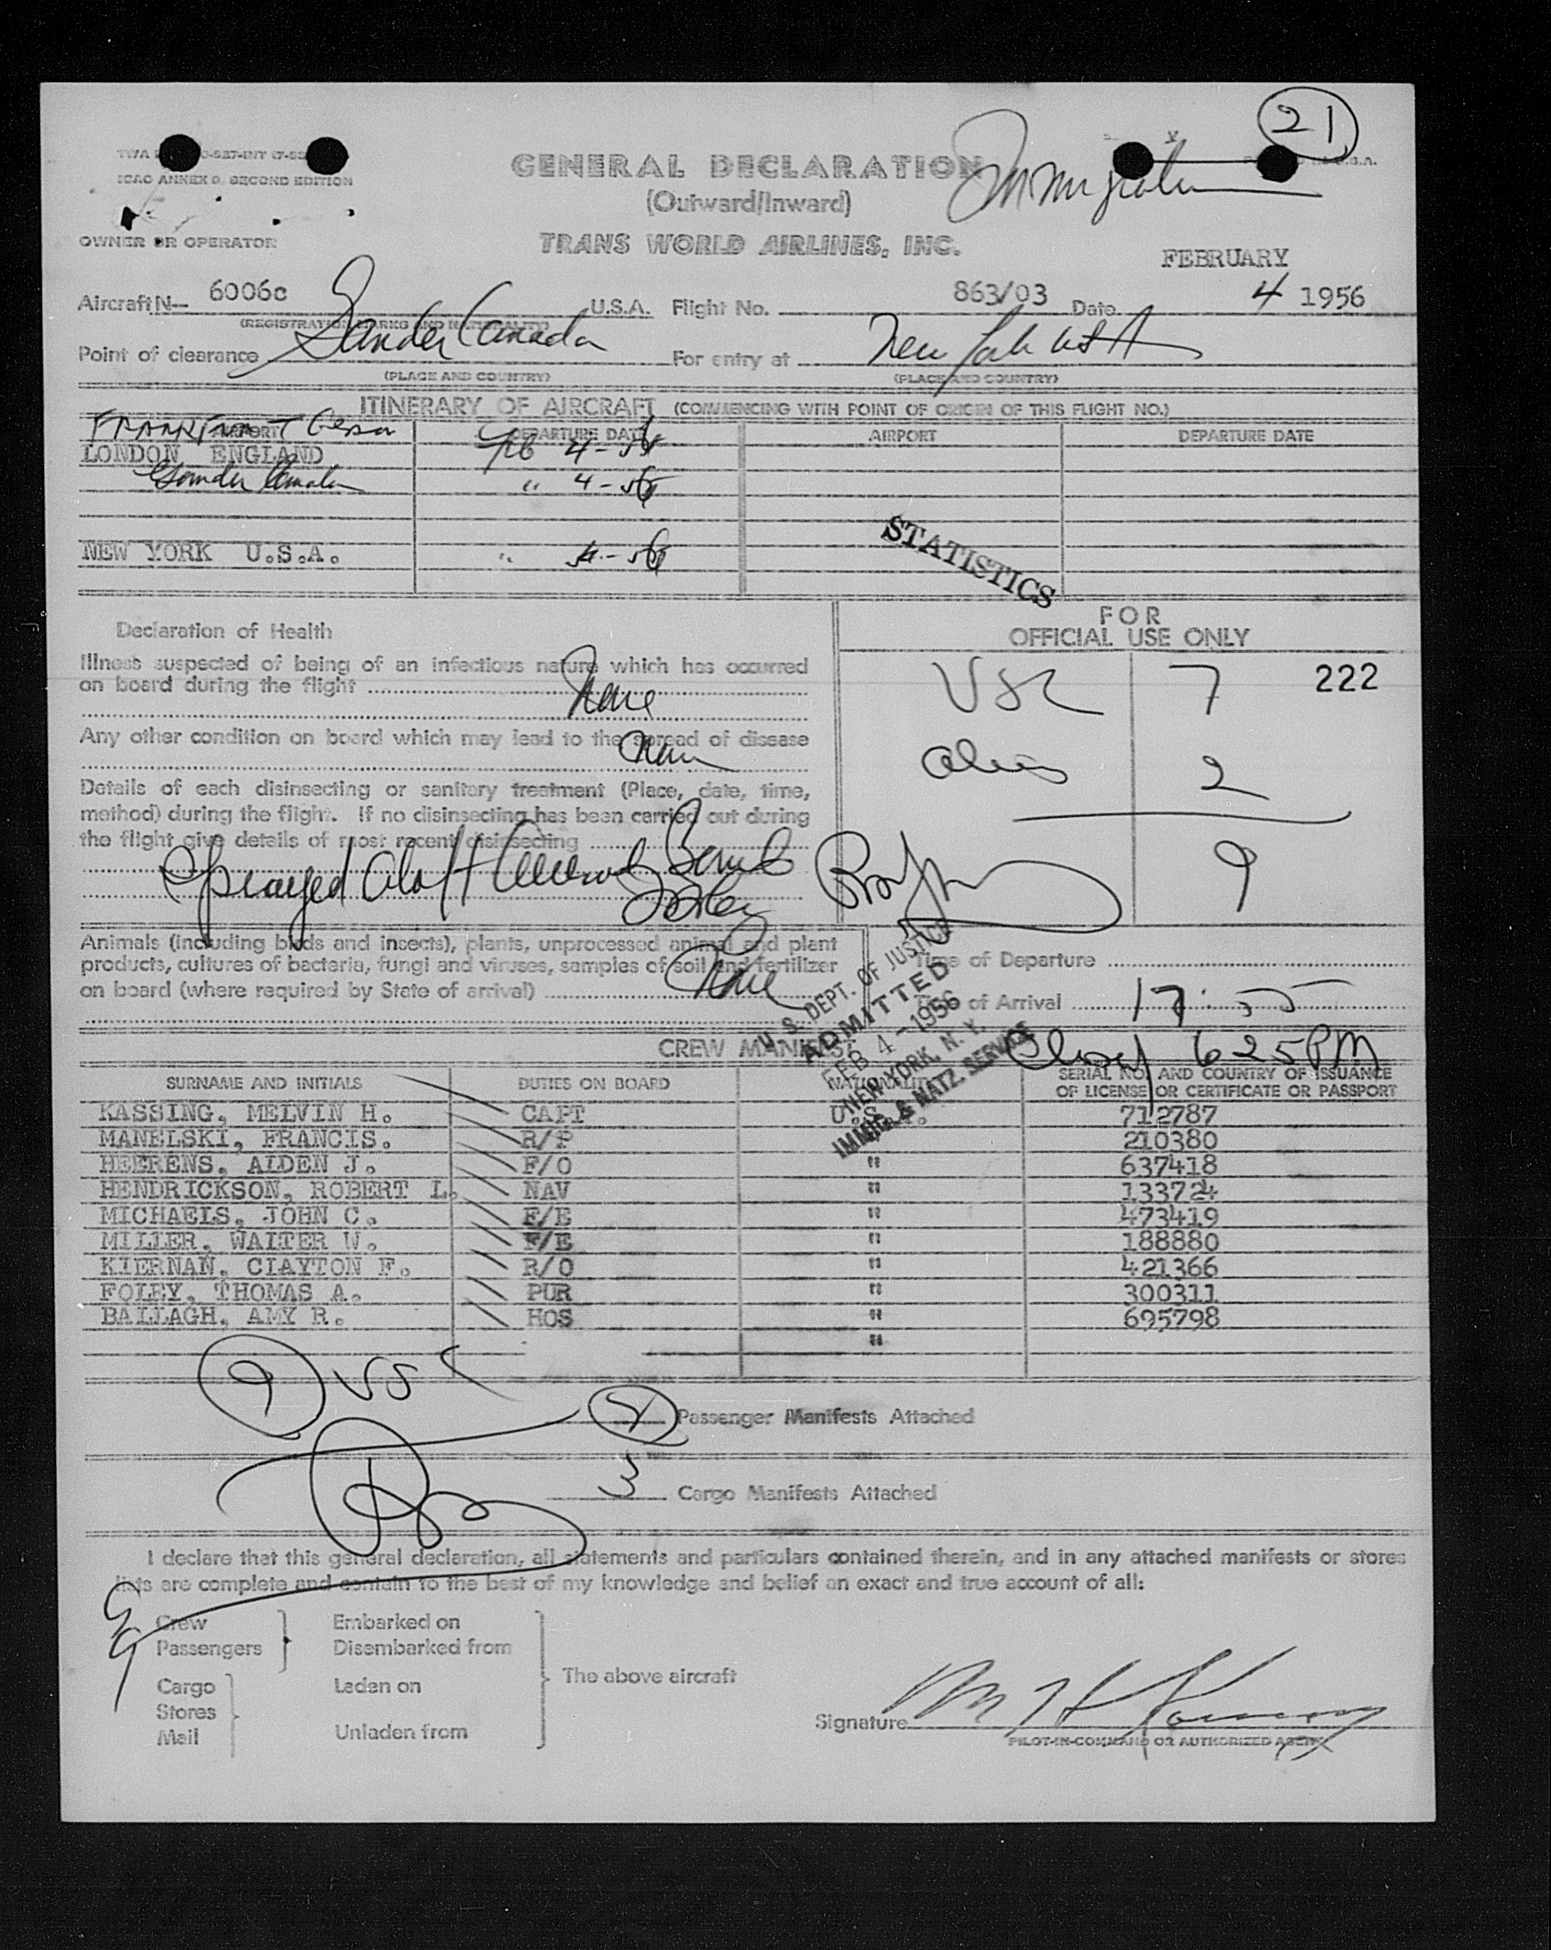 21
TWA
ICAO ANNEX 9, SECOND EDITION
GENERAL DECLARATION
(Outward/Inward)
Immigration
OWNER OR OPERATOR
TRANS WORLD AIRLINES, INC.
FEBRUARY
Aircraft N— 6006c U.S.A. Flight No. 863/03 Date 4 1956
(REGISTRATION MARKS AND NATIONALITY)
Point of clearance Gander Canada For entry at New York USA
(PLACE AND COUNTRY) (PLACE AND COUNTRY)
ITINERARY OF AIRCRAFT (COMMENCING WITH POINT OF ORIGIN OF THIS FLIGHT NO.)
AIRPORT DEPARTURE DATE AIRPORT DEPARTURE DATE
FRANKFURT
LONDON ENGLAND Feb 4-56
Gander Canada " 4-56
NEW YORK U.S.A. " 4-56
STATISTICS
Declaration of Health
FOR
OFFICIAL USE ONLY
Illness suspected of being of an infectious nature which has occurred
on board during the flight None
USC 7 222
Any other condition on board which may lead to the spread of disease
None
Alien 2
Details of each disinsecting or sanitary treatment (Place, date, time,
method) during the flight. If no disinsecting has been carried out during
the flight give details of most recent disinsecting
Sprayed Aloft Aerosol Bomb
Foley
9
Animals (including birds and insects), plants, unprocessed animal and plant
products, cultures of bacteria, fungi and viruses, samples of soil and fertilizer
on board (where required by State of arrival) None
Time of Departure
Time of Arrival 17:55
U. S. DEPT. OF JUSTICE
ADMITTED
FEB 4 - 1956
NEW YORK, N. Y.
IMMIG. & NATZ. SERVICE
Closed 625 PM
CREW MANIFEST
SURNAME AND INITIALS DUTIES ON BOARD NATIONALITY SERIAL NO. AND COUNTRY OF ISSUANCE
OF LICENSE OR CERTIFICATE OR PASSPORT
KASSING, MELVIN H. CAPT U.S. 712787
MANELSKI, FRANCIS. R/P 210380
HEERENS, AIDEN J. F/O " 637418
HENDRICKSON, ROBERT L. NAV " 133724
MICHAELS, JOHN C. F/E " 473419
MILLER, WALTER W. F/E " 188880
KIERNAN, CLAYTON F. R/O " 421366
FOLEY, THOMAS A. PUR " 300311
BALLAGH, AMY R. HOS " 695798
"
9 USC
Passenger Manifests Attached
3 Cargo Manifests Attached
I declare that this general declaration, all statements and particulars contained therein, and in any attached manifests or stores
lists are complete and contain to the best of my knowledge and belief an exact and true account of all:
Crew Embarked on
Passengers Disembarked from
Cargo Laden on The above aircraft
Stores
Mail Unladen from
Signature
PILOT-IN-COMMAND OR AUTHORIZED AGENT